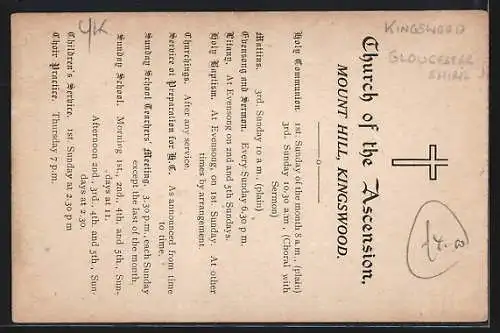 Church of the Ascension,
MOUNT HILL, KINGSWOOD.
Holy Communion 1st. Sunday of the month 8 a.m., (plain)
3rd. Sunday 10.30 a.m., (Choral with
Sermon)
Mattins. 3rd. Sunday 10 a.m., (plain)
Evensong and Sermon. Every Sunday 6.30 p.m.
Litany. At Evensong on 2nd and 5th Sundays.
Holy Baptism. At Evensong, on 1st. Sunday. At other
times by arrangement.
Churchings. After any service.
Service of Preparation for H.C. As announced from time
to time.
Sunday School Teachers' Meeting. 3.30 p.m., each Sunday
except the last of the month.
Sunday School. Morning 1st., 2nd, 4th, and 5th., Sun-
days at 11.
Afternoon 2nd., 3rd., 4th, and 5th., Sun-
days at 2.30.
Children's Service. 1st. Sunday at 2.30 p.m
Choir Practice. Thursday 7 p.m.
KINGSWOOD
GLOUCESTER
SHIRE
UK